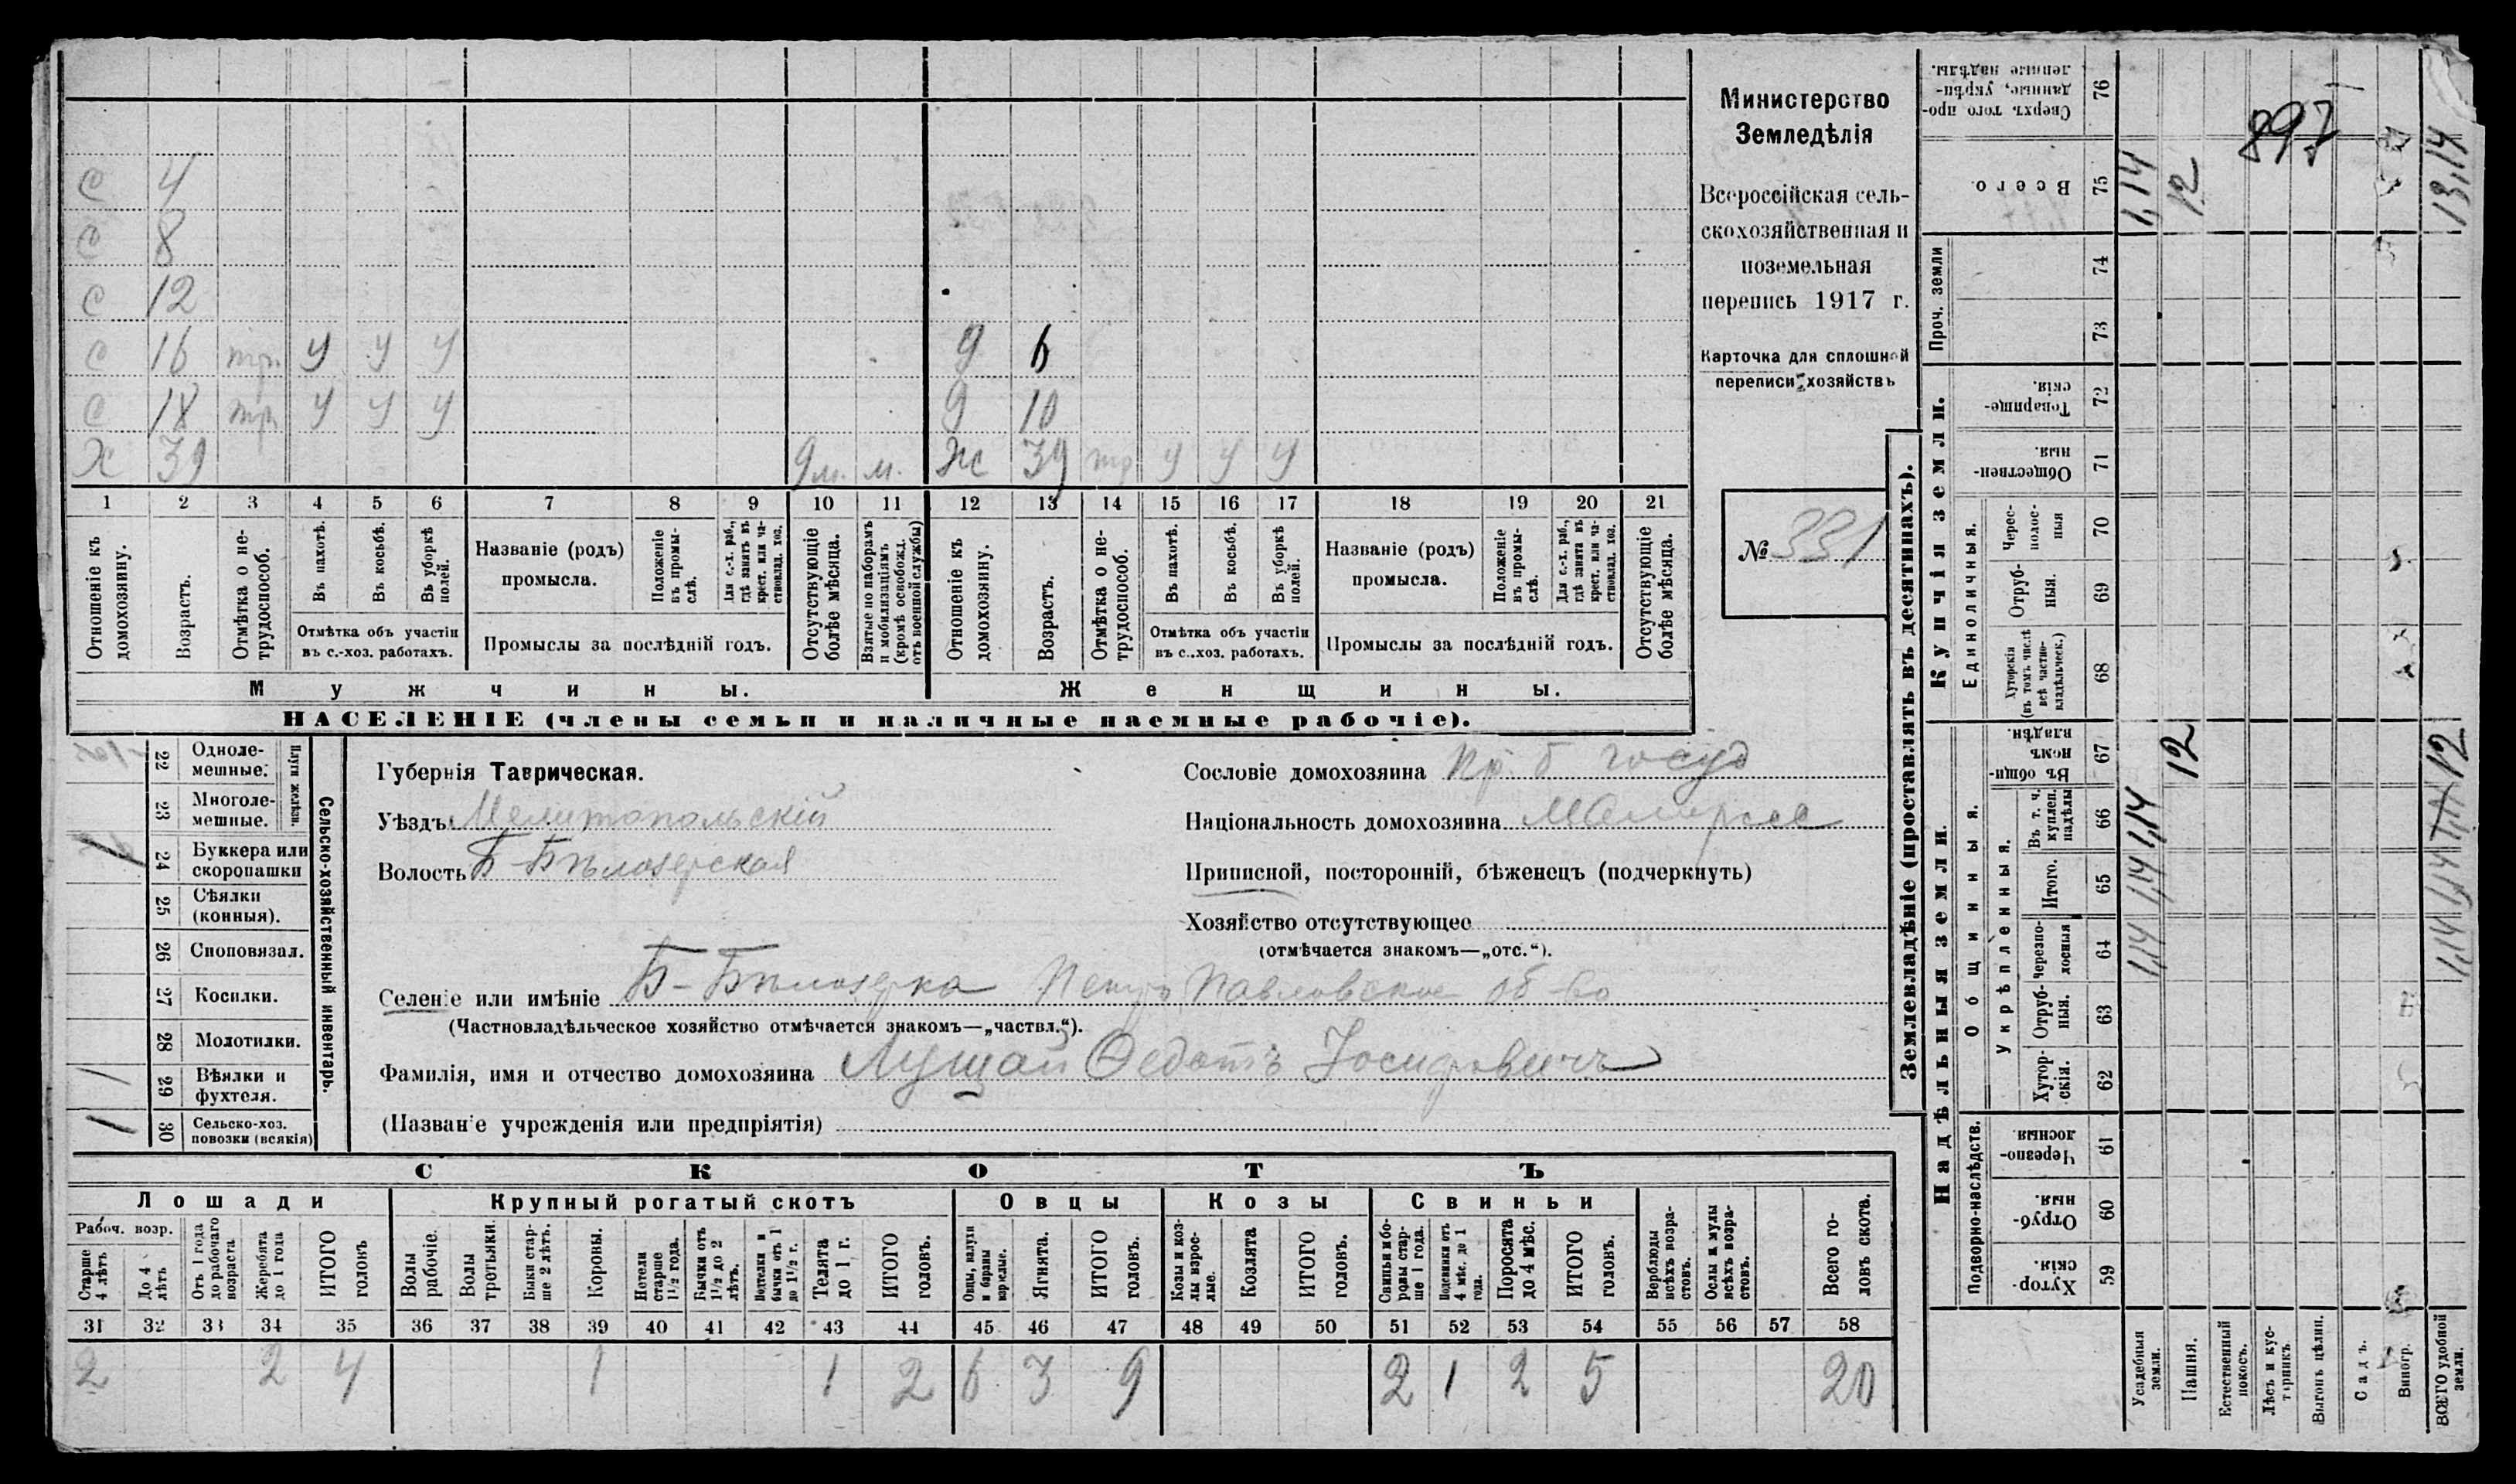 Министерство
Земледѣлія
Всероссійская сель-
скохозяйственная и
поземельная
перепись 1917 г.
Карточка для сплошной
переписи хозяйствъ
№ 331
897
С 4
С 8
С 12
С 16 тр. У У У
С 18 тр. У У У
Х 39 9 м. м.
д 6
д 10
Ж 39 тр У У У
1 2 3 4 5 6 7 8 9 10 11 12 13 14 15 16 17 18 19 20 21
Отношеніе къ домохозяину.
Возрастъ.
Отмѣтка о не-трудоспособ.
Въ пахотѣ.
Въ косьбѣ.
Въ уборкѣ полей.
Отмѣтка объ участіи
въ с.-хоз. работахъ.
Названіе (родъ)
промысла.
Положеніе въ промы-слѣ.
Для с.-х. раб., гдѣ занятъ въ крест. или ча-стновлад. хоз.
Промыслы за послѣдній годъ.
Отсутствующіе болѣе мѣсяца.
Взятые по наборамъ и мобилизаціямъ (кромѣ освобожд. отъ военной службы)
Отношеніе къ домохозяину.
Возрастъ.
Отмѣтка о не-трудоспособ.
Въ пахотѣ.
Въ косьбѣ.
Въ уборкѣ полей.
Отмѣтка объ участіи
въ с..хоз. работахъ.
Названіе (родъ)
промысла.
Положеніе въ промы-слѣ.
Для с.-х. раб., гдѣ занята въ крест. или ча-стновлад. хоз.
Промыслы за послѣдній годъ.
Отсутствующіе болѣе мѣсяца.
Мужчины.
Женщины.
НАСЕЛЕНІЕ (члены семьи и наличные наемные рабочіе).
Сельско-хозяйственный инвентарь.
Плуги желѣзн.
22 Одноле-
мешные.
23 Многоле-
мешные.
24 Буккера или
скоропашки
1
25 Сѣялки
(конныя).
26 Сноповязал.
27 Косилки.
28 Молотилки.
29 Вѣялки и
фухтеля.
1
30 Сельско-хоз.
повозки (всякія)
1
Губернія Таврическая.
Уѣздъ Мелитопольскій
Волость Б-Бѣлозерская
Сословіе домохозяина пр. б госуд
Національность домохозяина Малоросс
Приписной, посторонній, бѣженецъ (подчеркнуть)
Хозяйство отсутствующее
(отмѣчается знакомъ—„отс.“).
Селеніе или имѣніе Б-Бѣлозерка Петро Павловское об-во
(Частновладѣльческое хозяйство отмѣчается знакомъ—„частвл.“).
Фамилія, имя и отчество домохозяина Лущай Ѳедотъ Іосифовичъ
(Названіе учрежденія или предпріятія)
СКОТЪ
Лошади
Крупный рогатый скотъ
Овцы
Козы
Свиньи
Рабоч. возр.
Старше 4 лѣтъ
До 4 лѣтъ
Отъ 1 года до рабочаго возраста
Жеребята до 1 года
ИТОГО головъ
Волы рабочіе.
Волы третьяки.
Быки стар-ше 2 лѣтъ.
Коровы.
Нетели старше 1½ года.
Бычки отъ 1½ до 2 лѣтъ.
Подтелки и бычки отъ 1 до 1½ г.
Телята до 1 г.
ИТОГО головъ.
Овцы, валухи и бараны взрослые.
Ягнята.
ИТОГО головъ.
Козы и коз-лы взрос-лые.
Козлята
ИТОГО головъ.
Свиньи и бо-ровы стар-ше 1 года.
Подсвинки отъ 4 мѣс. до 1 года.
Поросята до 4 мѣс.
ИТОГО головъ.
Верблюды всѣхъ возра-стовъ.
Ослы и мулы всѣхъ возра-стовъ.
Всего го-ловъ скота.
31 32 33 34 35 36 37 38 39 40 41 42 43 44 45 46 47 48 49 50 51 52 53 54 55 56 57 58
2 2 4 1 1 2 6 3 9 2 1 2 5 20
Землевладѣніе (проставлять въ десятинахъ).
Надѣльныя земли.
Купчія земли.
Проч. земли
Подворно-наслѣдств.
Общинныя.
Укрѣпленныя.
Единоличныя.
Сверхъ того про-данные, укрѣп-ленные надѣлы. 76
Всего. 75
74
73
Товарище-скія. 72
Обществен-ныя. 71
Черес-полос-ныя 70
Отруб-ныя. 69
Хуторскія (въ томъ числѣ всѣ частно-владѣльческ.) 68
Въ общин-номъ владѣн. 67
Въ т. ч. куплен. надѣлы 66
Итого. 65
Черезпо-лосныя 64
Отруб-ныя. 63
Хутор-скія. 62
Черезпо-лосныя. 61
Отруб-ныя. 60
Хутор-скія. 59
Усадебныя земли.
1,14 1,14 1,14 1,14
Пашня.
12 12
Естественный покосъ.
Лѣсъ и кус-тарникъ.
Выгонъ цѣлин.
Садъ.
Виногр.
ВСЕГО удобной земли.
1,14 1,14 1,14 12 13,14